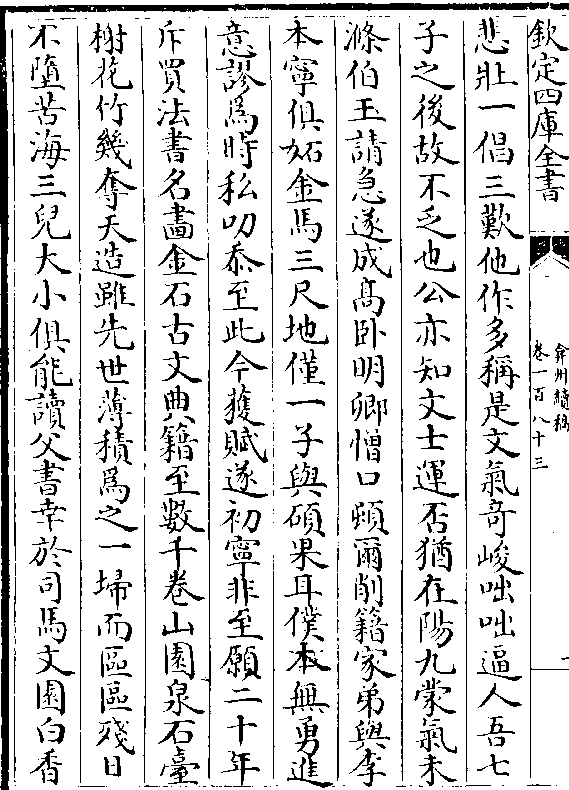 欽定四庫全書
弇州續稿
卷一百八十三
一
悲壯一倡三歎他作多稱是文氣奇峻咄咄逼人吾七
子之後故不乏也公亦知文士運否猶在陽九蒙氣未
滌伯玉請急遂成高卧明卿憎口頗爾削籍家弟與李
本寧俱妬金馬三尺地僅一子與碩果耳僕本無勇進
意謬為時私叨忝至此今獲賦遂初寧非至願二十年
斥買法書名畵金石古文典籍至數千卷山園泉石臺
樹花竹幾奪天造雖先世薄積為之一埽而區區殘日
不墮苦海三兒大小俱能讀父書幸於司馬文園白香